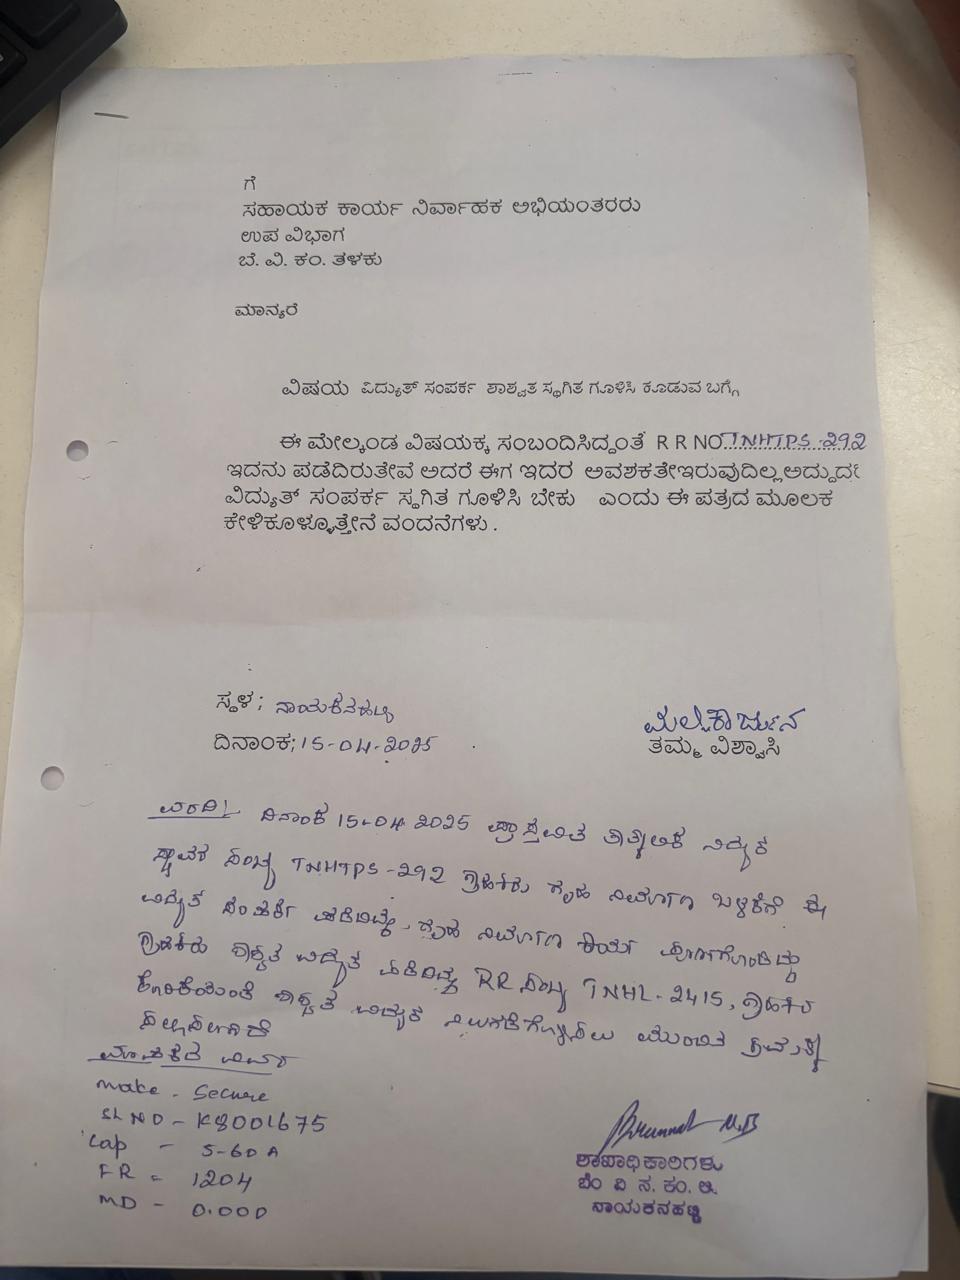 ಗೆ
ಸಹಾಯಕ ಕಾರ್ಯ ನಿರ್ವಾಹಕ ಅಭಿಯಂತರರು
ಉಪ ವಿಭಾಗ
ಬೆ. ವಿ. ಕಂ. ತಳಕು
ಮಾನ್ಯರೆ
ವಿಷಯ ವಿದ್ಯುತ್ ಸಂಪರ್ಕ ಶಾಶ್ವತ ಸ್ಥಗಿತ ಗೂಳಿಸಿ ಕೂಡುವ ಬಗ್ಗೆ
ಈ ಮೇಲ್ಕಂಡ ವಿಷಯಕ್ಕ ಸಂಬಂದಿಸಿದ್ದಂತೆ R R NO TNHTPS-292
ಇದನು ಪಡೆದಿರುತೇವೆ ಅದರೆ ಈಗ ಇದರ ಅವಶಕತೇಇರುವುದಿಲ್ಲ
ವಿದ್ಯುತ್ ಸಂಪರ್ಕ ಸ್ಥಗಿತ ಗೂಳಿಸಿ ಬೇಕು ಎಂದು ಈ ಪತ್ರದ ಮೂಲಕ
ಕೇಳಿಕೂಳ್ಳೂತ್ತೇನೆ ವಂದನೆಗಳು .
ಸ್ಥಳ ; ನಾಯಕನಹಟ್ಟಿ
ದಿನಾಂಕ; 15-04-2025
ಮಲ್ಲಿಕಾರ್ಜುನ
ತಮ್ಮ ವಿಶ್ವಾಸಿ
ವರದಿ/- ದಿನಾಂಕ 15-04-2025 ತಾತ್ಕಾಲಿಕ ವಿದ್ಯುತ್
ಸ್ಥಾವರ ಸಂಖ್ಯೆ TNHTPS-292 ಗ್ರಾಹಕರು ಗೃಹ ನಿರ್ಮಾಣ ಬಳಕೆಗೆ ಈ
ವಿದ್ಯುತ್ ಸಂಪರ್ಕ ಪಡೆದಿದ್ದು, ಗೃಹ ನಿರ್ಮಾಣ ಕಾರ್ಯ ಪೂರ್ಣಗೊಂಡಿದ್ದು
ಗ್ರಾಹಕರು ಶಾಶ್ವತ ವಿದ್ಯುತ್ ಪಡೆದಿದ್ದು RR ಸಂಖ್ಯೆ TNHL-2415, ಗ್ರಾಹಕರ
ಕೋರಿಕೆಯಂತೆ ಶಾಶ್ವತ ವಿದ್ಯುತ್ ಮುಂದಿನ ಕ್ರಮಕ್ಕೆ
ಸಲ್ಲಿಸಲಾಗಿದೆ
ಮಾಪಕದ ವಿವರ
Make - Secure
SL NO - K8001675
Cap - 5-60A
FR - 1204
MD - 0.000
ಶಾಖಾಧಿಕಾರಿಗಳು
ಬೆಂ ವಿ ಸ. ಕಂ. ನಿ.
ನಾಯಕನಹಟ್ಟಿ